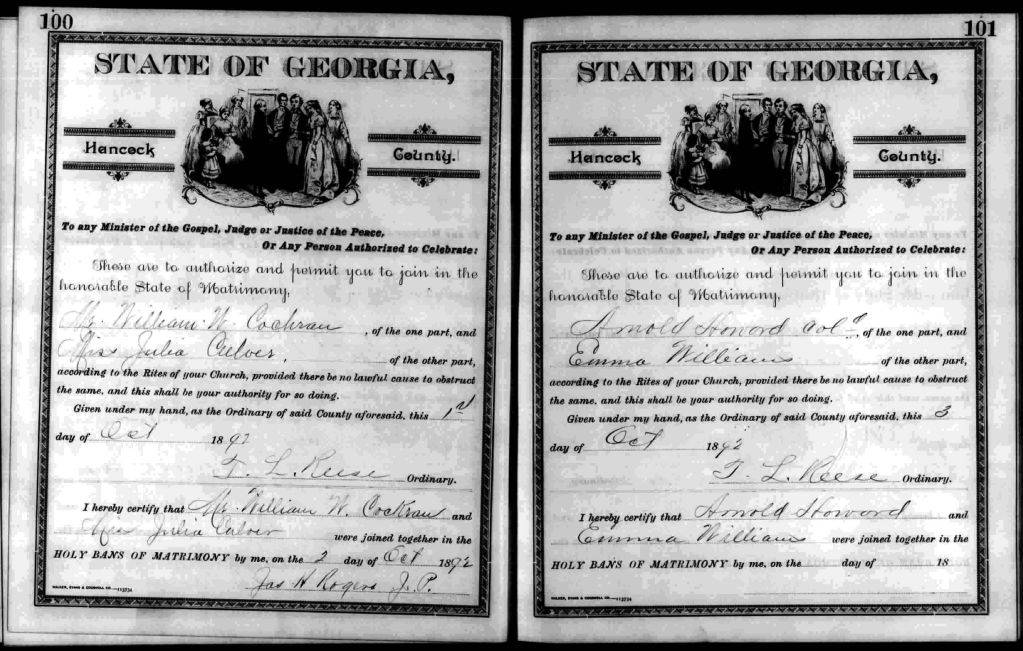 100
STATE OF GEORGIA,
Hancock County.
To any Minister of the Gospel, Judge or Justice of the Peace,
Or Any Person Authorized to Celebrate:
These are to authorize and permit you to join in the
honorable State of Matrimony,
Mr. William W. Cochran , of the one part, and
Miss Julia Culver, of the other part,
according to the Rites of your Church, provided there be no lawful cause to obstruct
the same, and this shall be your authority for so doing.
Given under my hand, as the Ordinary of said County aforesaid, this 1st
day of Oct 1892
T. L. Reese Ordinary.
I hereby certify that Mr. William W. Cochran and
Miss Julia Culver were joined together in the
HOLY BANS OF MATRIMONY by me, on the 2 day of Oct 1892
Jas H Rogers J. P.
WALKER, EVANS & COGSWELL CO.—113734
101
STATE OF GEORGIA,
Hancock County.
To any Minister of the Gospel, Judge or Justice of the Peace,
Or Any Person Authorized to Celebrate:
These are to authorize and permit you to join in the
honorable State of Matrimony,
Arnold Howard cold , of the one part, and
Emma William of the other part,
according to the Rites of your Church, provided there be no lawful cause to obstruct
the same, and this shall be your authority for so doing.
Given under my hand, as the Ordinary of said County aforesaid, this 3
day of Oct 1892
T. L. Reese Ordinary.
I hereby certify that Arnold Howard and
Emma William were joined together in the
HOLY BANS OF MATRIMONY by me, on the day of 18
WALKER, EVANS & COGSWELL CO.—113734